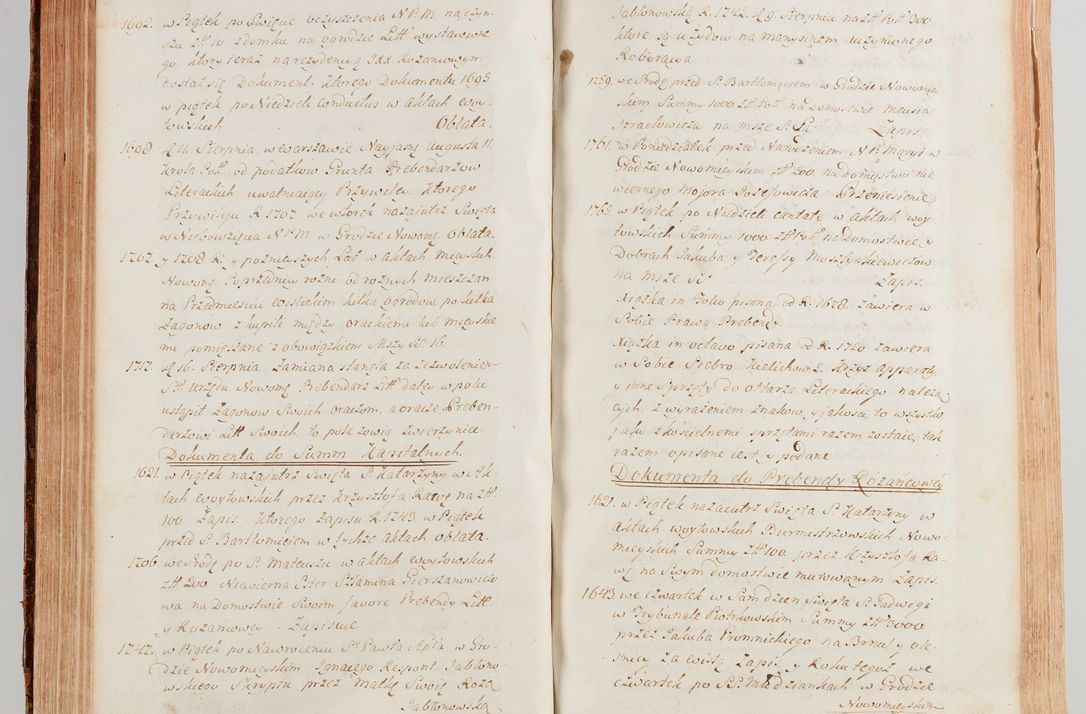 1692. w Piątek po Święcie Oczyszczenia N.P.M. na czyn-
szu ztt 10 z domku na ogrodzie Litt wystawione
go ktory teraz na rezydencyą Ixx Rozancowym
dostał się Dokument. Ktorego Dokumentu 1695
w piątek po Niedzieli Conductus w aktach woy-
towskich Oblata.
1698 d. 11. Sierpnia w Warszawie Nayjaśny Augusta II.
Krola Pol: od podatkow Grunta Prebendarzow
Literackich uwalniaiący Przywiley. Ktorego
Przywileiu R. 1707 we wtorek nazajutrz Święta
w Niebowzięcia N.P.M. w Grodzie Nowom: Oblata.
1707. y 1708 R: y poznieyszych Lat w aktach mieyskich
Nowom: Poprzednicy rożni od rożnych mieszczan
na Przedmiesciu kilka ogrodow, po kilka
Zagonow zkupili między orackiemi lub mieyskie
mi pomięszane z obowiązkiem Mszy SS. 16.
1717. d. 16. Sierpnia Zamiana stanęła za Zezwoleniem
Urzędu Nowom: Prebendarz Litt daley w polu
ustąpił Zagonow Swoich oraczom, a oracze Preben-
darzowi Litt Swoich, to pole zowią Zwierzyniec
Dokumenta do Summ Kapitalnych.
1621. w Piątek nazajutrz Święta S. Katarzyny w Ak-
tach woytowskich przez Krzysztofa Kawę na ztt
100. Zapis. Ktorego Zapisu R. 1743. w Piątek
przed S. Bartłomieiem w tychże aktach oblata.
1706 we Srodę po S. Mateuszu w aktach woytowskich
ztt 200 Niewierna Ester Szlamina Gierszanowiczo
wa na Domostwie Swoim favore Prebendy Litt
y Rożańcowey. Zapisuie
1747. w Piątek po Nawroceniu S° Pawła Apła w Gro-
dzie Nowomieyskim Ignacego Respont Jabłono-
wskiego Skryptu przez Matkę Swoię Rozą
Jabłonowską
Jabłonowską R. 1742. d. 9. Sierpnia na ztt Pol 300
ktore są u Żydow na manysinem uczynionego
Roboracya.
1759. we Srodę przed S. Bartłomieiem w Grodzie Nowomiey
skim Summy 1000 ztt Pol na Domostwie Meusia
Izraelowicza na msze S. Zapis.
1761. w Poniedziałek przed Narodzeniem N.P. Maryi w
Grodzie Nowomieyskim ztt 200 na Domostwo nie
wiernego Majora Jozefowicza. Przeniesienie
1763. w Piątek po Niedzieli Cantate w aktach woy
towskich Summy 1000 ztt Pol na domostwie y
Dobrach Jakuba y Teresy Moszynskiewiczow
na msze S. Zapis.
Xiążka in Folio pisana od R. 1628 zawiera w
Sobie Prawa Prebendy.
Xiążka in octavo pisana od R. 1720 zawiera
w Sobie Srebro Kielichow 2. Krzyż apparaty
y inne Sprzęty do ołtarza Literackiego należą
cych, z wyrażeniem znakow, y jakości, to wszystko
jako z koscielnemi sprzętami razem zostaie, tak
razem opisane iest, y podane
Dokumenta do Prebendy Rożancowey
1621. w Piątek nazaiutrz Święta S. Katarzyny w
Aktach woytowskich Burmistrzowskich Nowo-
mieyskich Summy ztt 100. przez Krzysztofa Ka-
wę na Swym domostwie murowanym Zapis
1643. we czwartek w Sam dzien Święta S. Jadwigi
w Trybunale Piotrkowskim Summy ztt 3000
przez Jakuba Fromnickiego na y ole-
snicy Zawistą Zapis, y Roku tegoż we
czwartek po SS. Młodziankach w Grodzie
Nowomieyskim